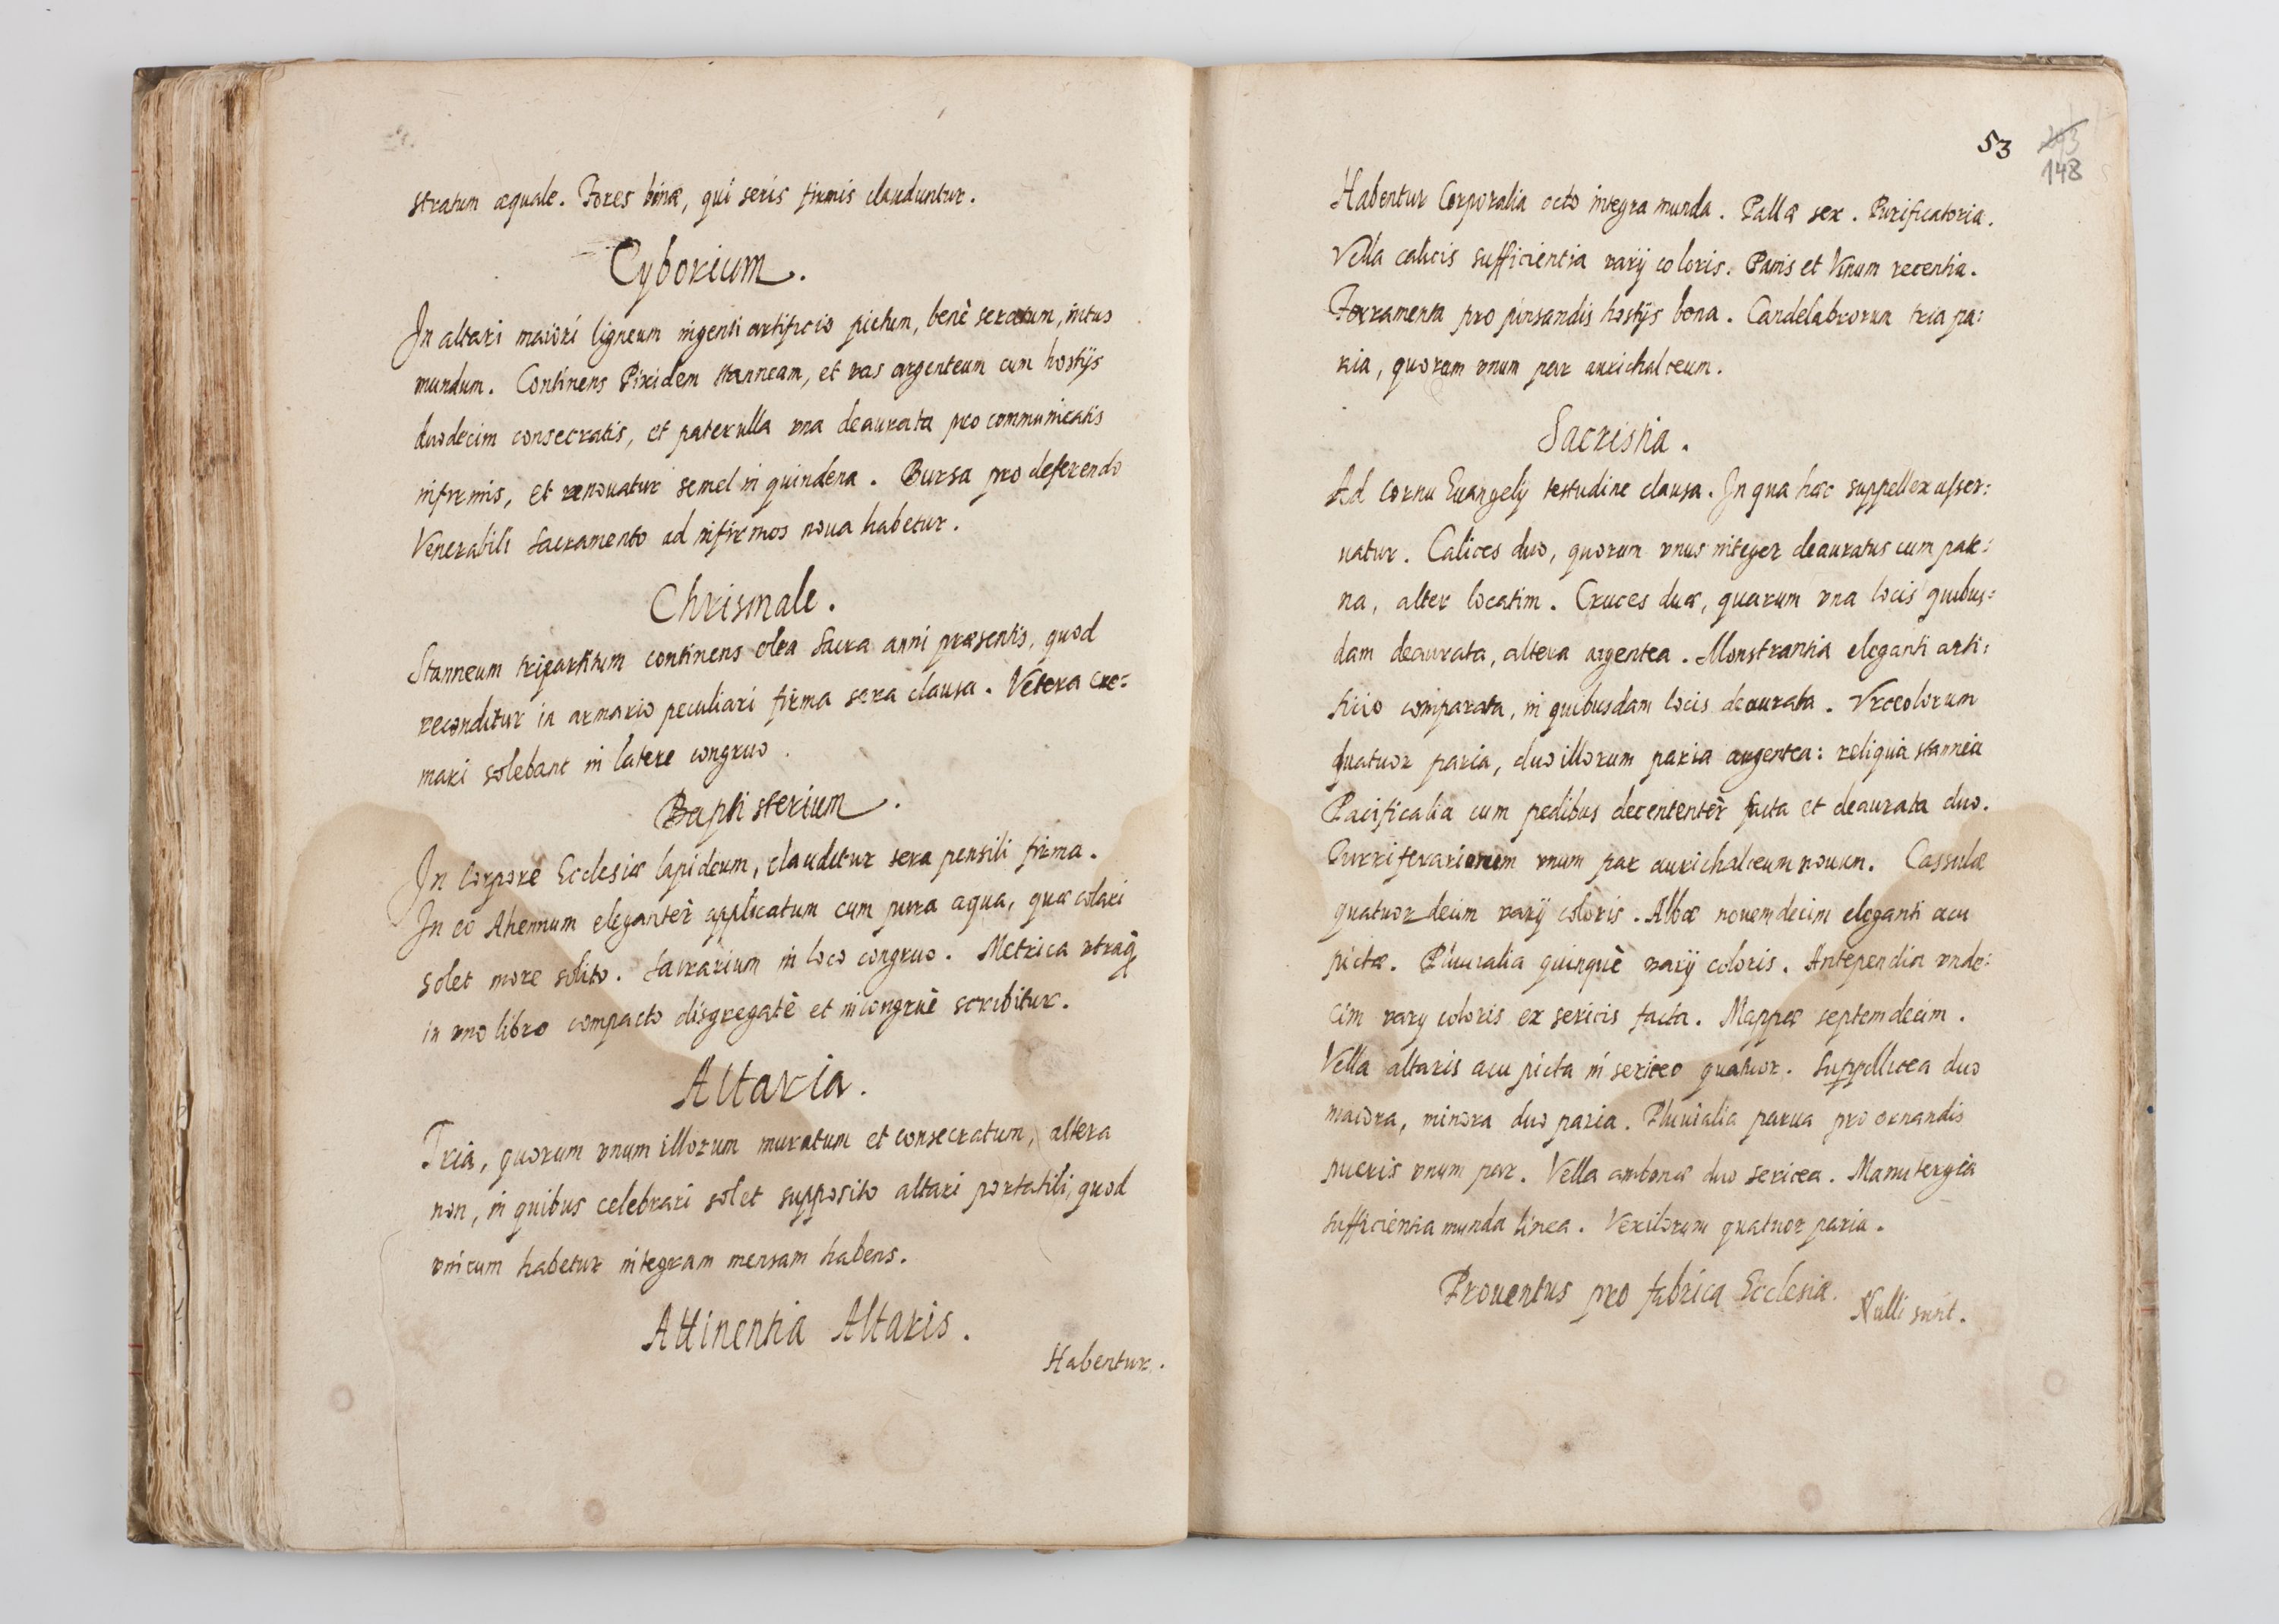 stratum æquale. Fores binæ, qui seris firmis clauduntur.
Cyborium.
In altari maiori ligneum ingenti artificio pictum, benè seratum, intus
mundum. Continens Pixidem stanneam, et vas argenteum cum hostijs
duodecim consecratis, et paterulla vna deaurata pro communicatis
infirmis, et renouatur semel in quindena. Bursa pro deferendo
Venerabili Sacramento ad infirmos noua habetur.
Chrismale.
Stanneum tripartitum continens olea Sacra anni præsentis, quod
reconditur in armario peculiari firma sera clausa. Vetera cre=
mari solebant in latere congruo.
Baptisterium.
In Corpore Ecclesiæ lapideum, clauditur sera pensili firma.
In eo Ahennum eleganter applicatum cum pura aqua, quæ colari
solet more solito. Sacrarium in loco congruo. Metrica vtraq
in vno libro compacto disgregatè et incongruè scribitur.
Altaria.
Tria, quorum vnum illorum muratum et consecratum, altera
non, in quibus celebrari solet supposito altari portatili, quod
vnicum habetur integram mensam habens.
Attinentia Altaris.
Habentur.
53
293
148
Habentur Corporalia octo integra munda. Pallæ sex. Purificatoria.
Vella calicis sufficientia varij coloris. Panis et Vinum recentia.
Ferramenta pro pinsandis hostijs bona. Candelabrorum tria pa:
ria, quorum vnum par aurichalceum.
Sacristia.
Ad Cornu Euangelij testudine clausa. In qua hæc suppellex asser:
uatur. Calices duo, quorum vnus integer deauratus cum pate:
na, alter locatim. Cruces duæ, quarum vna locis quibus=
dam deaurata, altera argentea. Monstrantia eleganti arti:
ficio comparata, in quibusdam locis deaurata. Vrceolorum
quatuor paria, duo illorum paria argentea: reliqua stannea
Pacificalia cum pedibus decententèr facta et deaurata duo.
Turriferariorum vnum par aurichalceum nouum. Cassulæ
quatuordecim varij coloris. Albæ nouemdecim eleganti acu
pictæ. Pluuialia quinquè varij coloris. Antependia vnde:
cim vary coloris ex sericis facta. Mappæ septemdecim.
Vella altaris acu picta in sericeo quatuor. Suppellicea duo
maiora, minora duo paria. Pluuialia parua pro ornandis
pueris vnum par. Vella ambonæ duo sericea. Manutergia
sufficientia munda linea. Vexilorum quatuor paria.
Prouentus pro fabrica Ecclesiæ.
Nulli sunt.